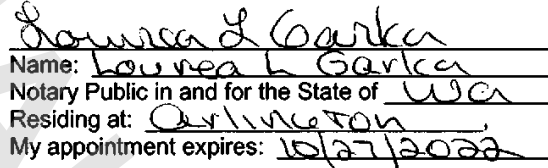 Lournea L Garka
Name: Lournea L Garka
Notary Public in and for the State of WA
Residing at: Arlington,
My appointment expires: 10/27/2022